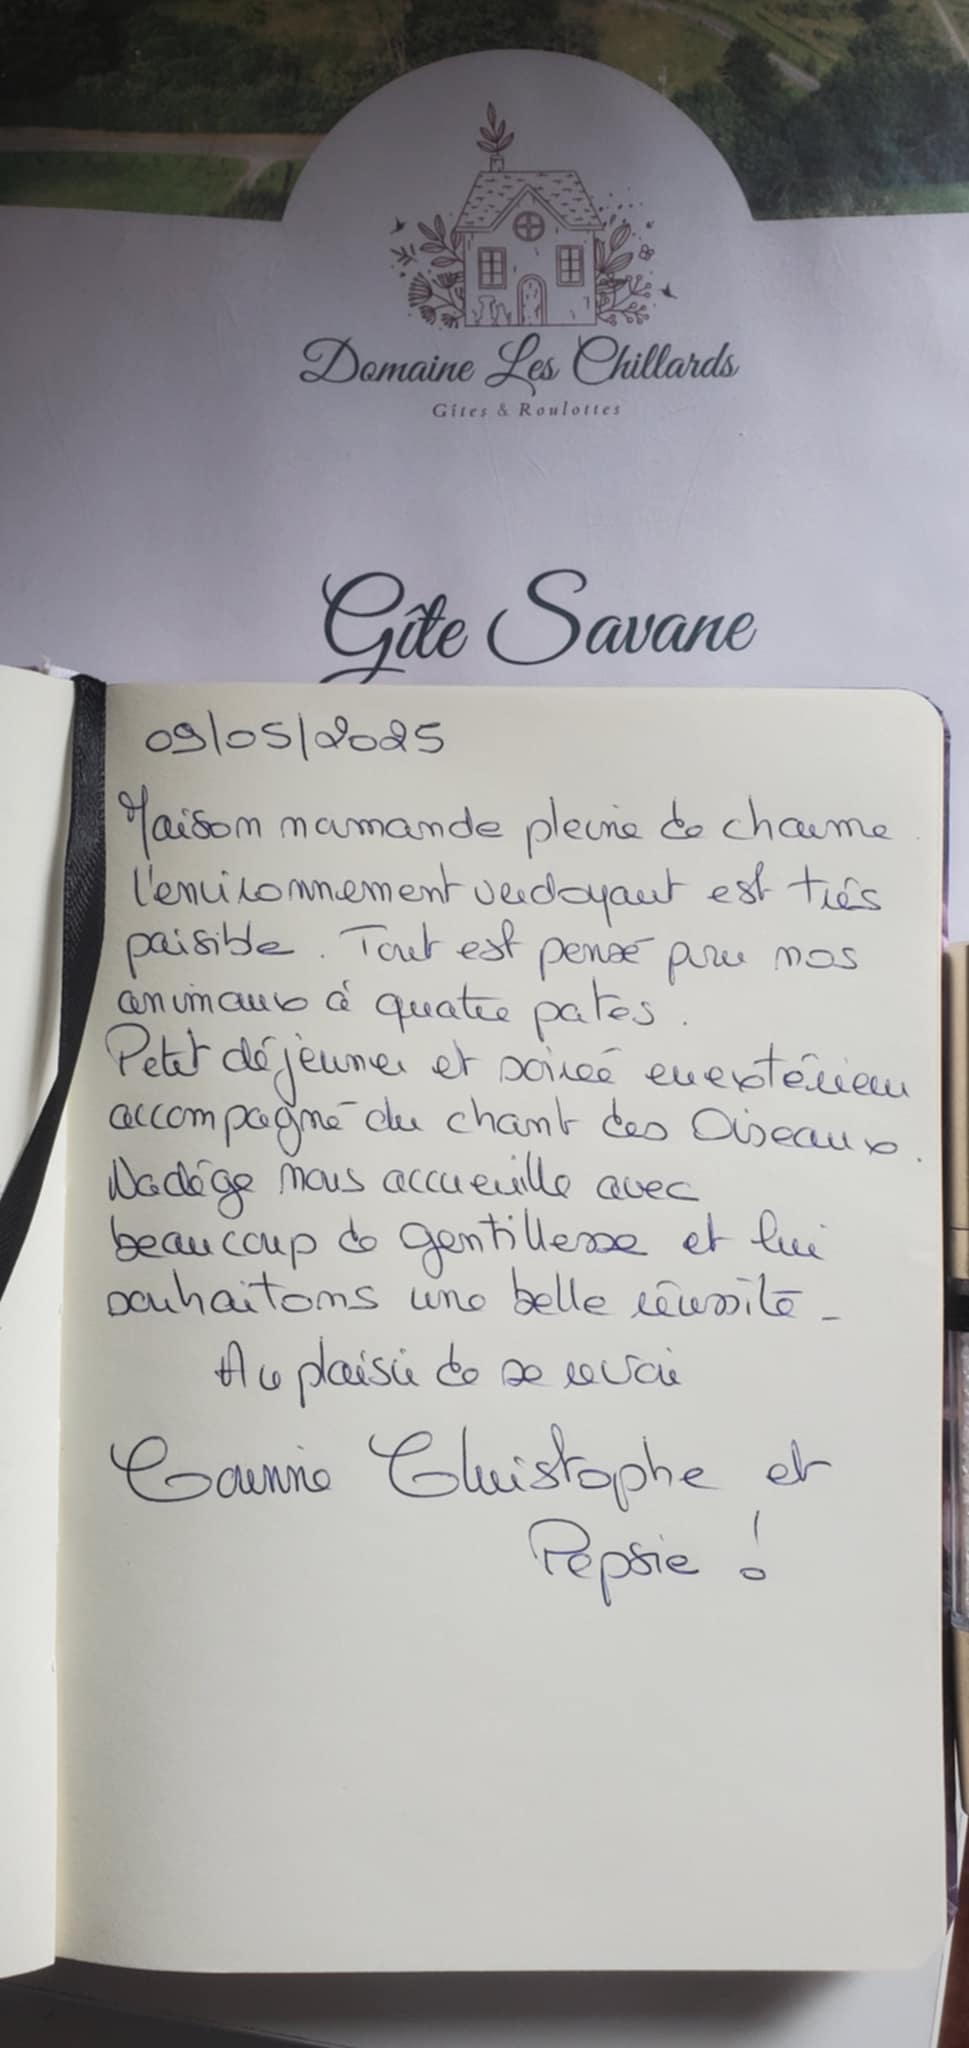 Domaine Les Chillards
Gîtes & Roulottes
Gîte Savane
09/05/2025
Maison normande pleine de charme.
l'environnement verdoyant est très
paisible. Tout est pensé pour nos
animaux à quatre pates.
Petit déjeuner et soirée en extérieur
accompagné du chant des Oiseaux.
Nadége nous accueille avec
beaucoup de gentillesse et lui
souhaitons une belle réussite -
Au plaisir de se revoir
Corinne Christophe et
Pepsie !